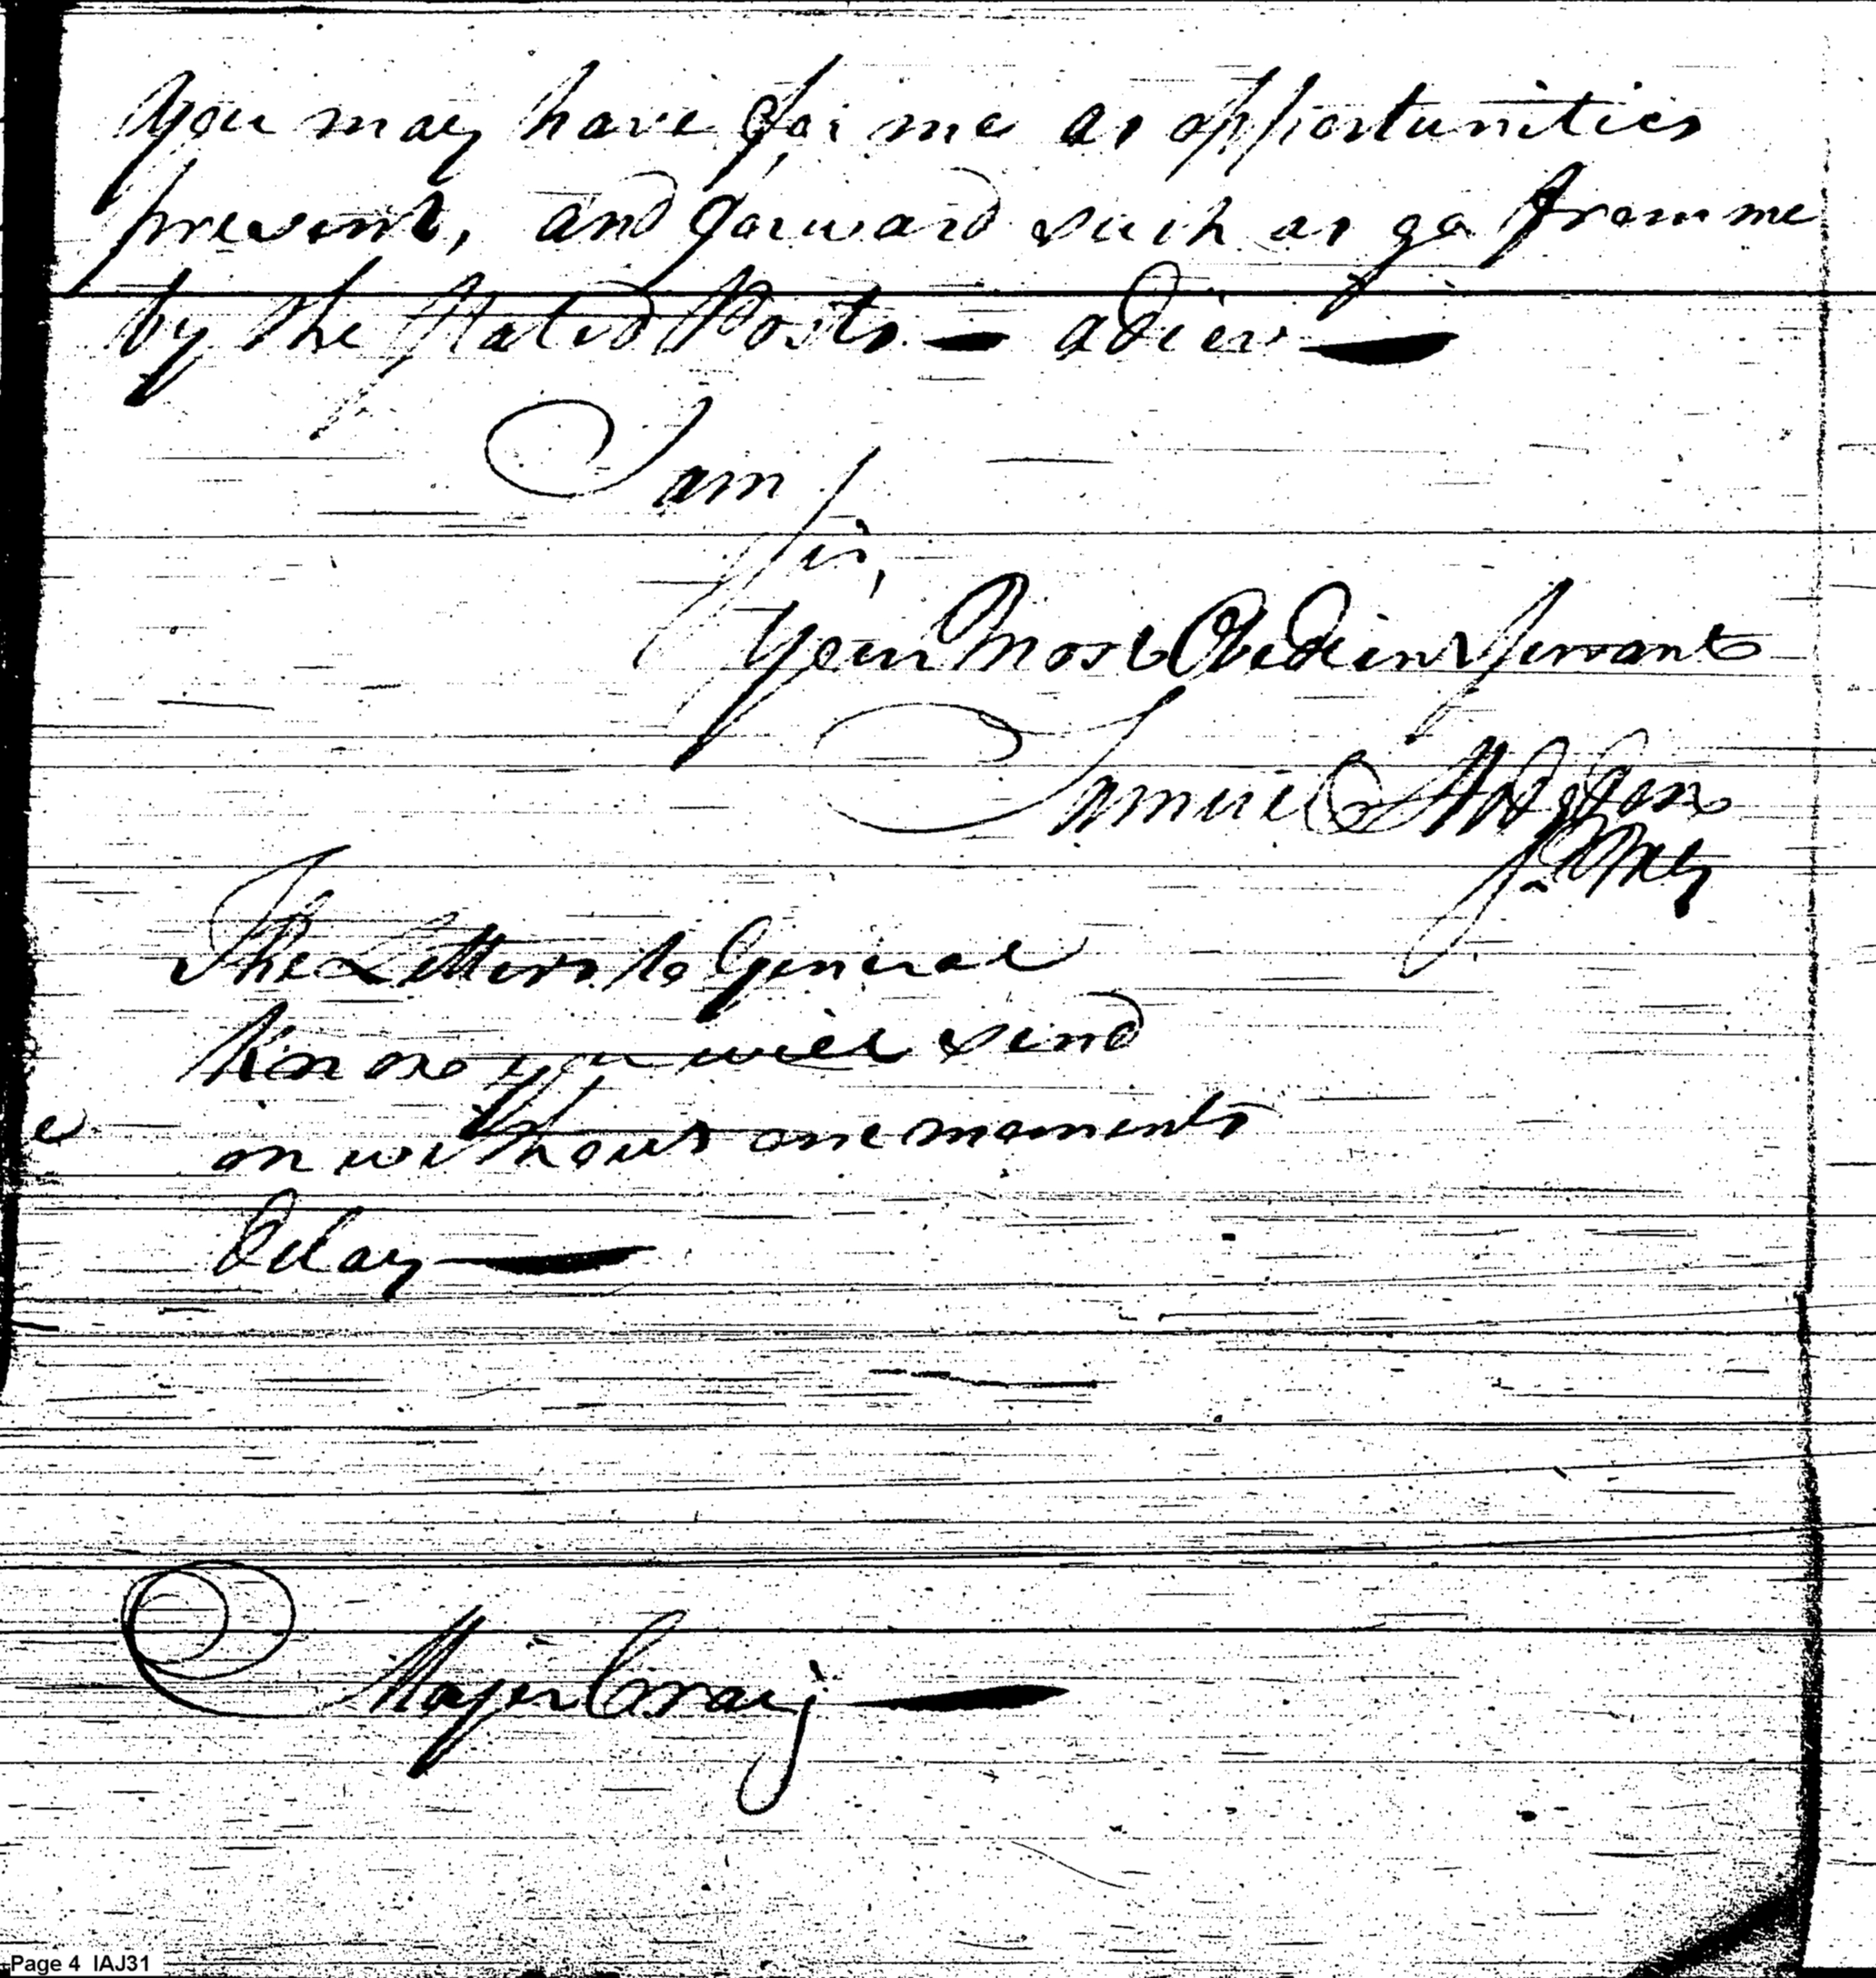 you may have for me as opportunities
present, and forward such as go from me
by the Stated Posts — adieu —
I am
Sir,
Your Most Obedient Servant
Samuel Hodgdon
The Letters to General
Knox you will send
on without one moments
delay —
Major Craig —
Page 4 IAJ31